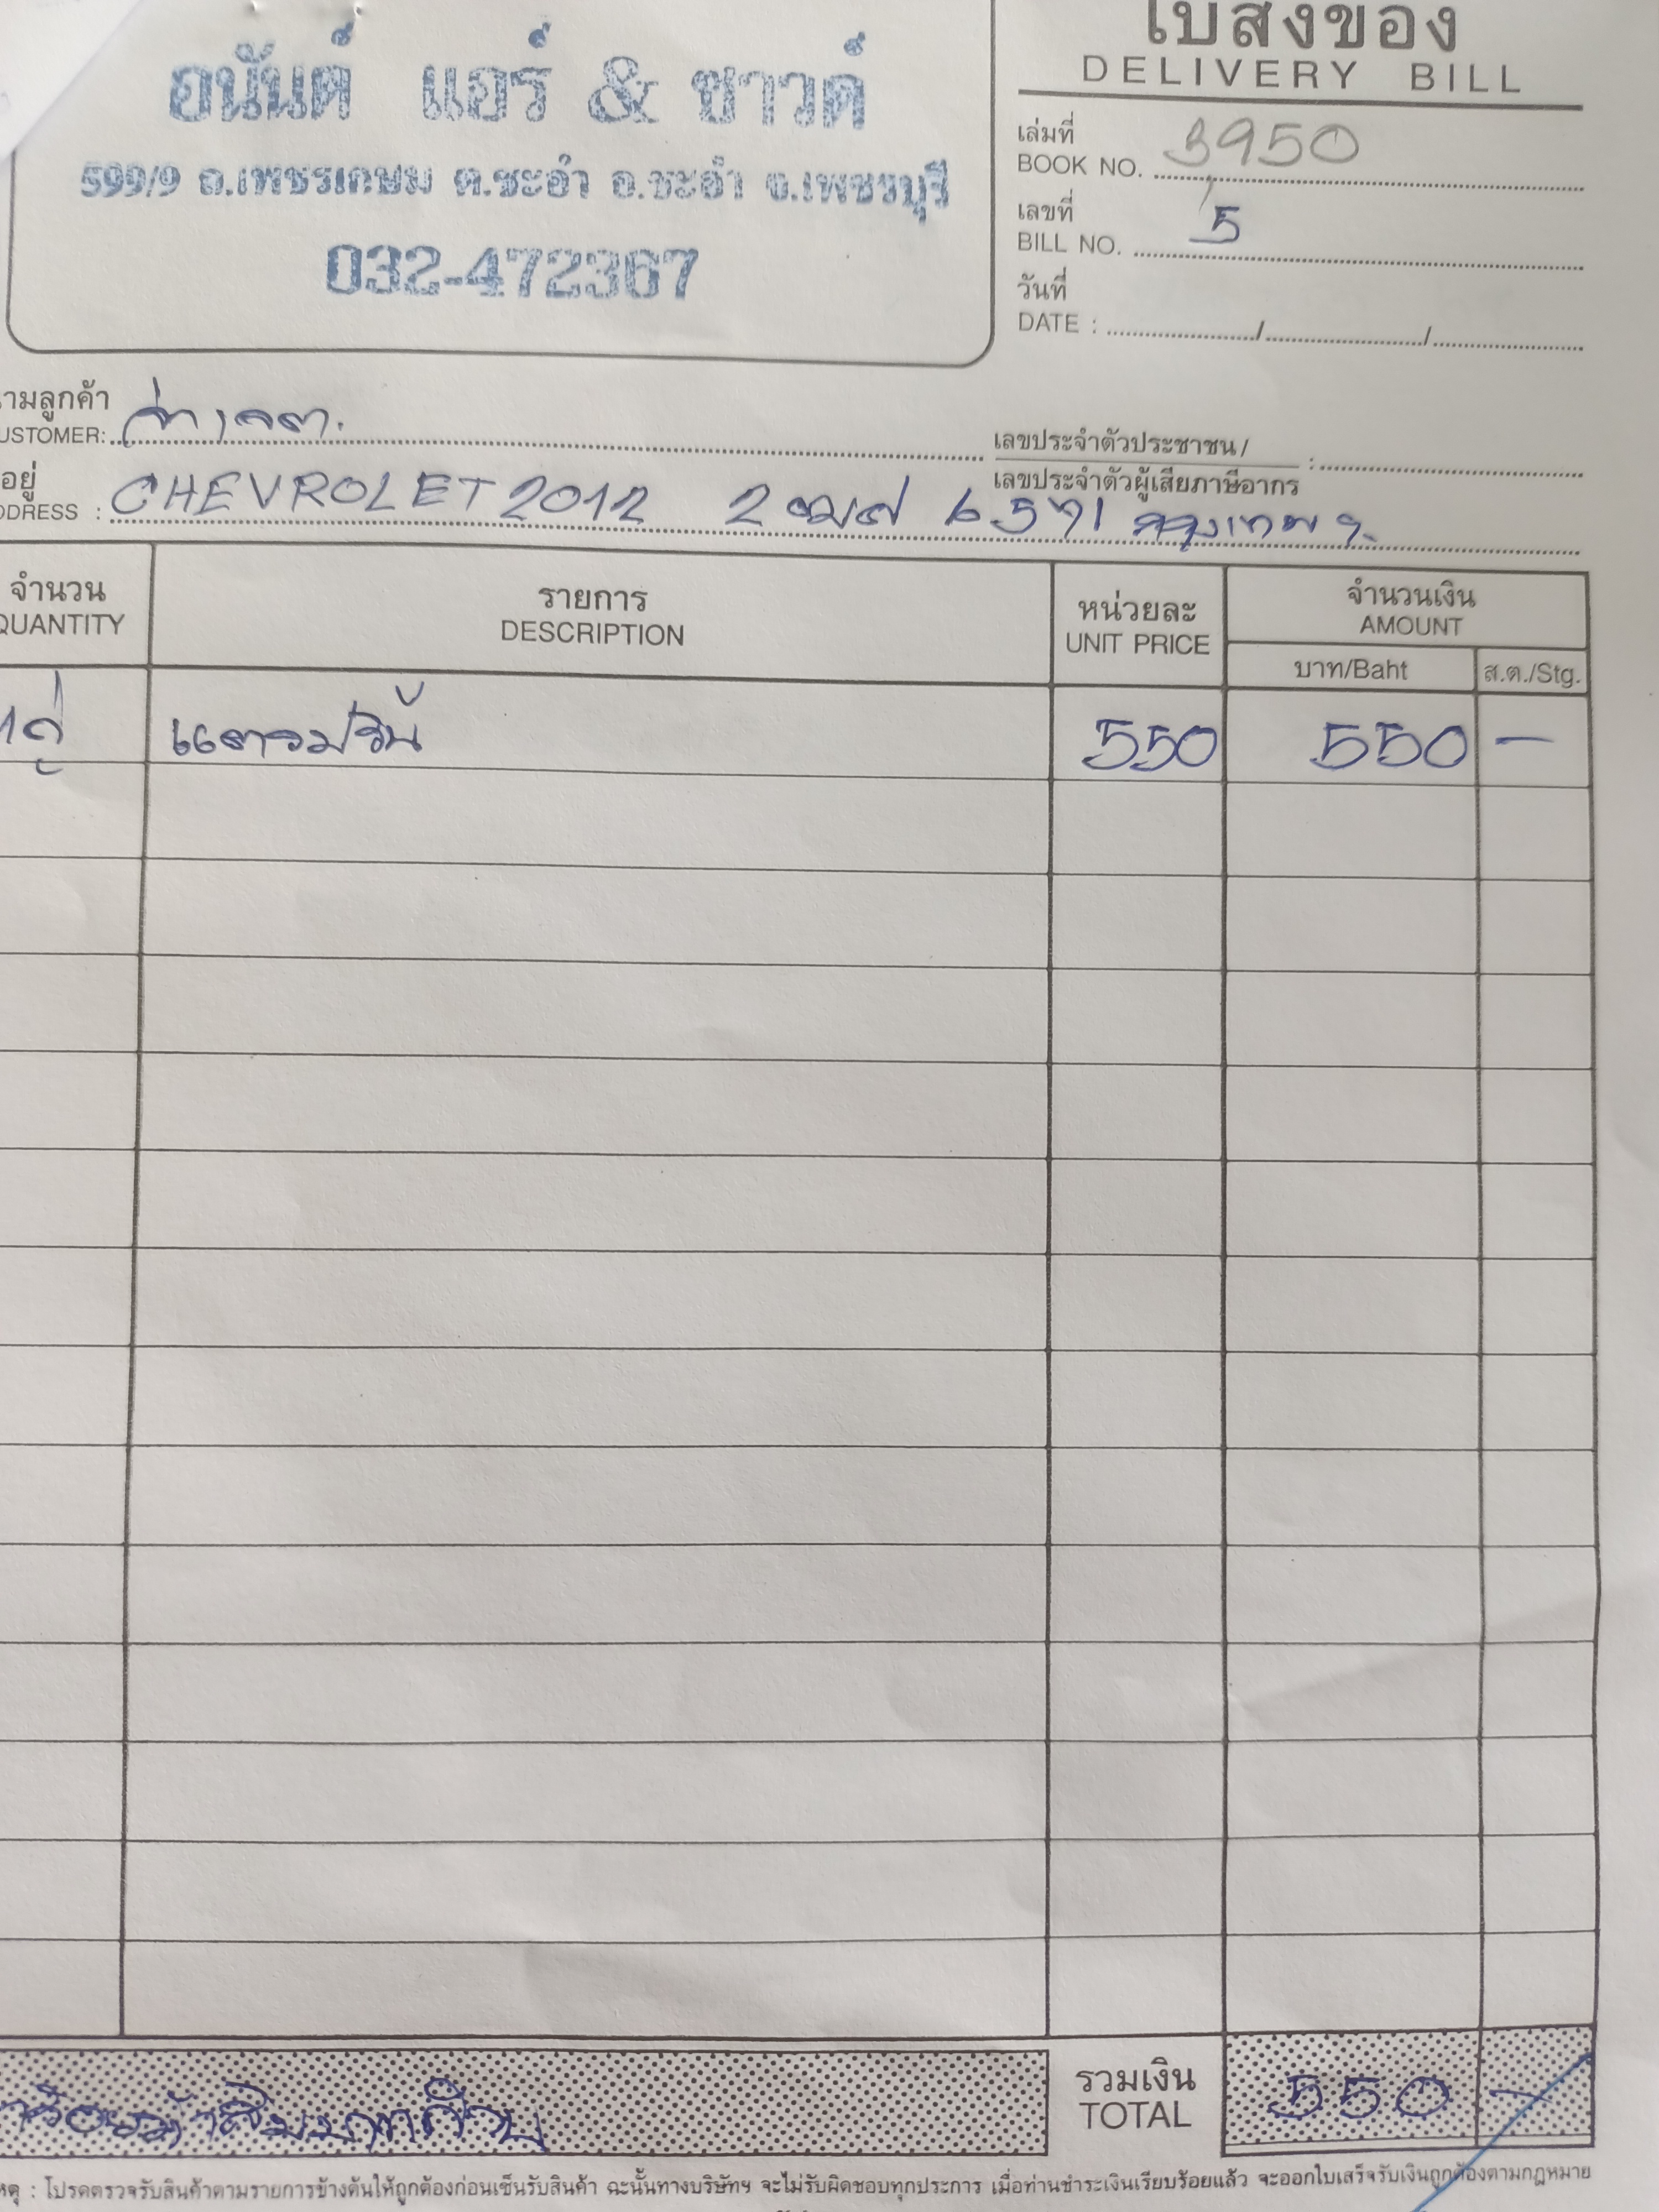 ใบส่งของ
DELIVERY BILL
อนันต์ แอร์ & ซาวด์
599/9 ถ.เพชรเกษม ต.ชะอำ อ.ชะอำ จ.เพชรบุรี
032-472367
เล่มที่
BOOK NO. 3950
เลขที่
BILL NO. 5
วันที่
DATE : / /
นามลูกค้า
CUSTOMER: จ่าเจต.
เลขประจำตัวประชาชน/
เลขประจำตัวผู้เสียภาษีอากร :
อยู่
ADDRESS : CHEVROLET 2012 2 ฒฬ 6571 กรุงเทพฯ
จำนวน
QUANTITY
รายการ
DESCRIPTION
หน่วยละ
UNIT PRICE
จำนวนเงิน
AMOUNT
บาท/Baht ส.ต./Stg.
1คู่ แตรวิน

550 550 -
ห้าร้อยห้าสิบบาทถ้วน
รวมเงิน
TOTAL
550 -
เหตุ : โปรดตรวจรับสินค้าตามรายการข้างต้นให้ถูกต้องก่อนเซ็นรับสินค้า ฉะนั้นทางบริษัทฯ จะไม่รับผิดชอบทุกประการ เมื่อท่านชำระเงินเรียบร้อยแล้ว จะออกใบเสร็จรับเงินถูกต้องตามกฎหมาย